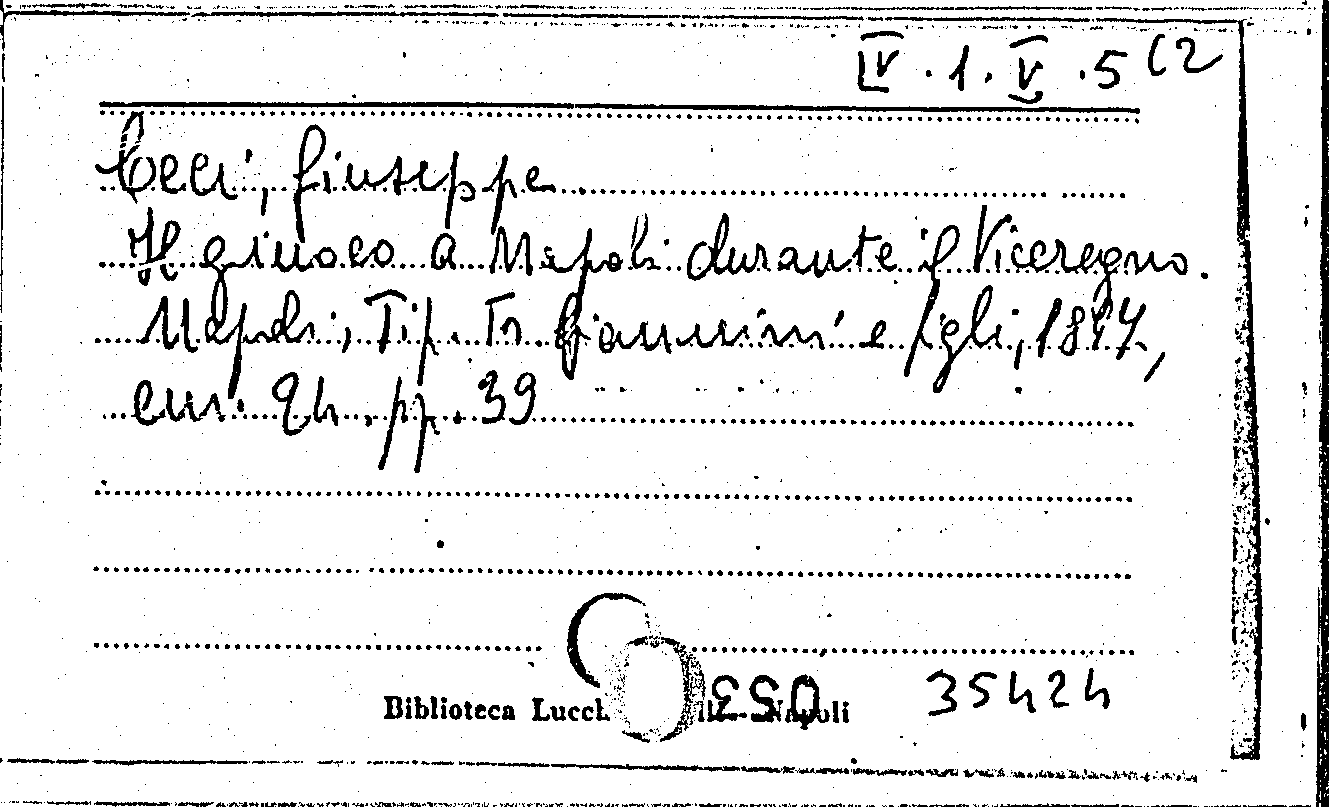 IV.1.V.5(2
Ceci, Giuseppe
Il giuoco a Napoli durante il Viceregno.
Napoli, Tip. Fr. Giannini e figli, 1897,
cm. 24. pp. 39
Biblioteca Lucch Napoli
35424